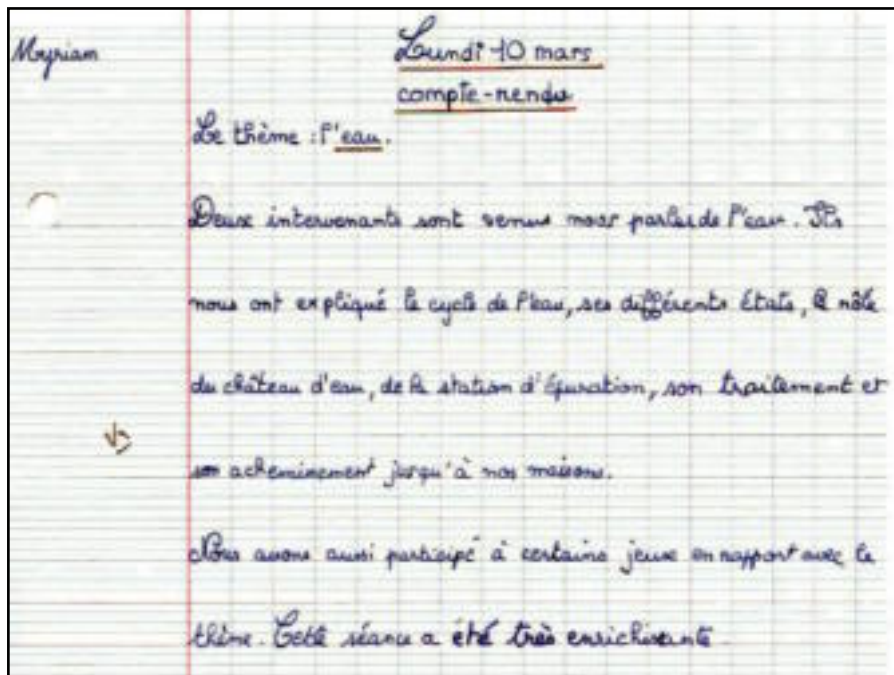 Myriam
Lundi 10 mars
compte-rendu
Le thème : l'eau.
Deux intervenants sont venus nous parler de l'eau. Ils
nous ont expliqué le cycle de l'eau, ses différents états, le rôle
du château d'eau, de la station d'épuration, son traitement et
son acheminement jusqu'à nos maisons.
Nous avons aussi participé à certains jeux en rapport avec le
thème. Cette séance a été très enrichissante.